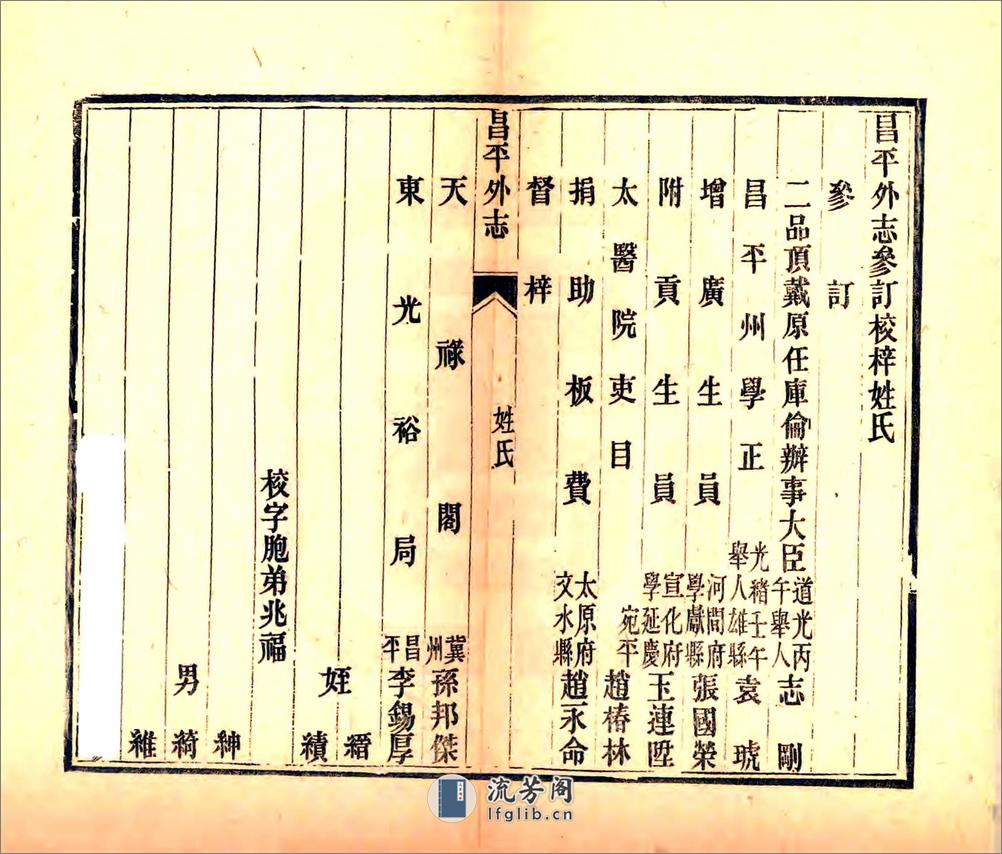 昌平外志參訂校梓姓氏
參訂
二品頂戴原任庫倫辦事大臣道光丙午舉人志剛
昌平州學正光緒壬午舉人雄縣袁琥
增廣生員河間府學獻縣張國榮
附貢生員宣化府學延慶王連陞
太醫院吏目宛平趙椿林
捐助板費太原府文水縣趙永命
督梓
昌平外志 姓氏
天祿閣冀州孫邦傑
東光裕局昌平李錫厚
姪縉
績
校字胞弟兆福
紳
男綺
維
流芳阁
lfglib.cn